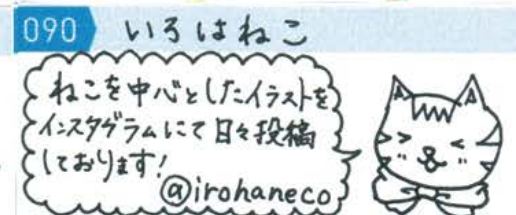 090 いろはねこ
ねこを中心としたイラストを
インスタグラムにて日々投稿
しております!
@irohaneco